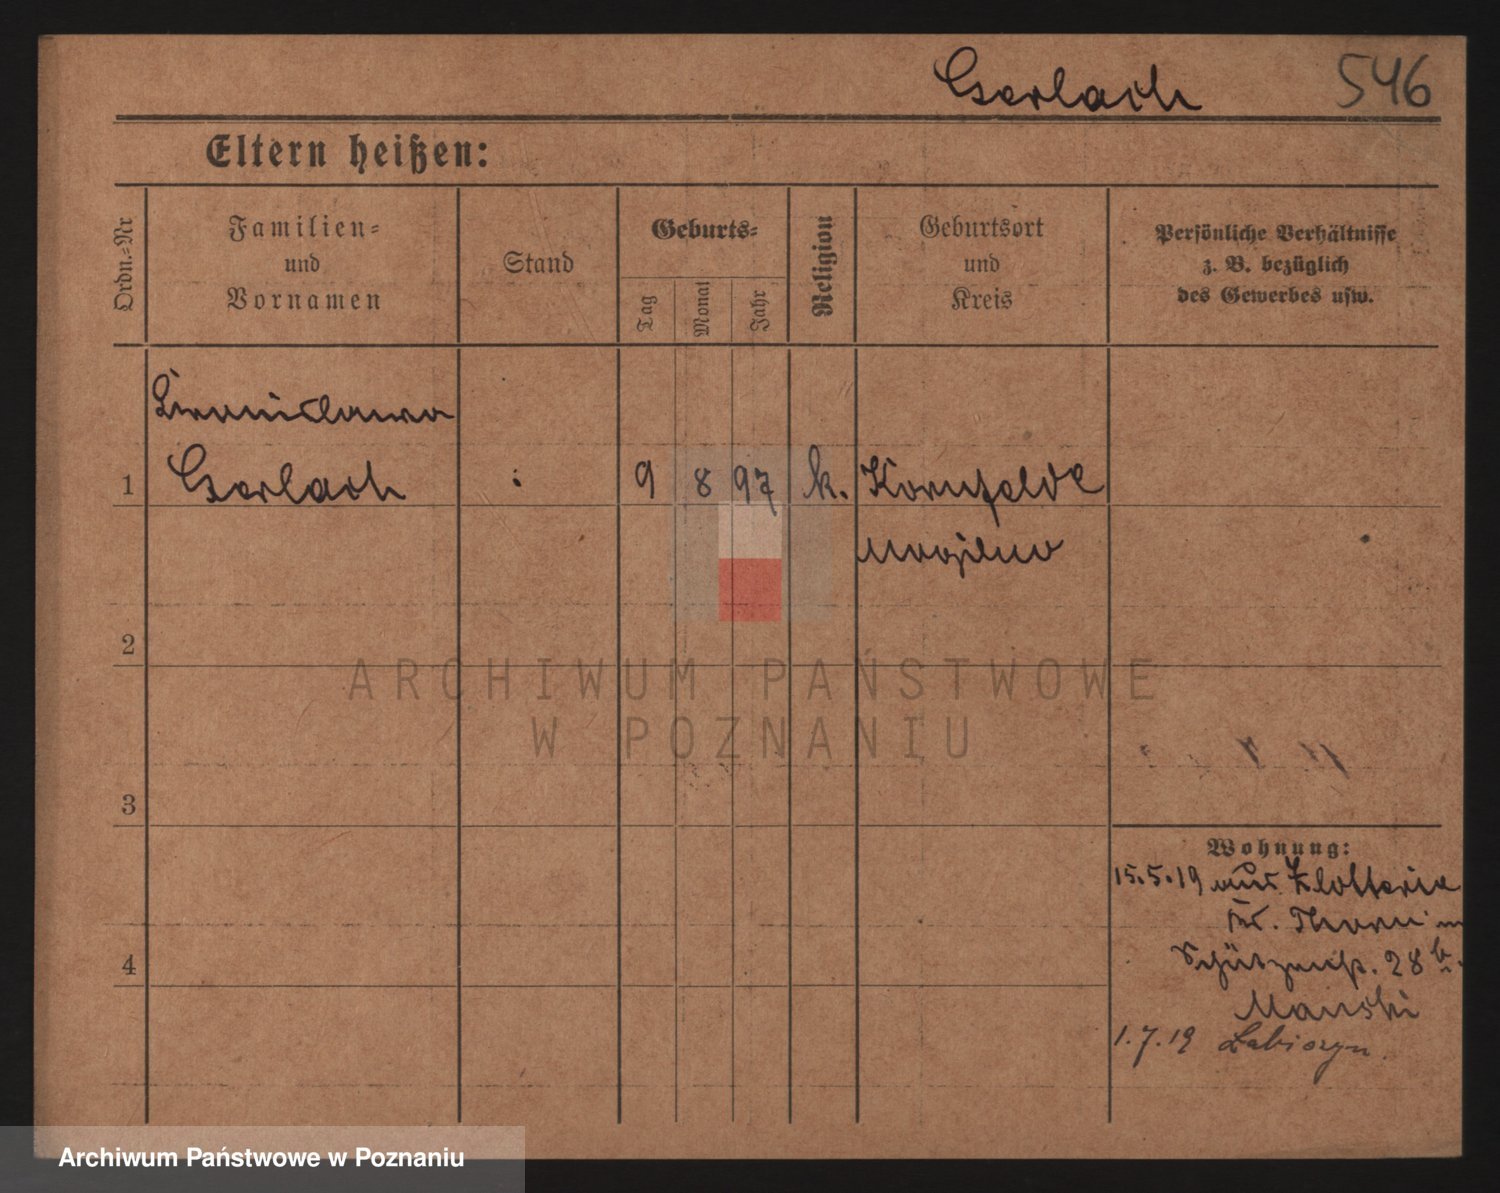 Gerlach 546
Eltern heißen:
Ordn.-Nr
Familien-
und
Vornamen
Stand
Geburts-
Tag
Monat
Jahr
Religion
Geburtsort
und
Kreis
Persönliche Verhältnisse
z. B. bezüglich
des Gewerbes usw.
1 Gerlach 9 8 97 k. Kornfelde
Mogilno
2
3
4
Wohnung:
15.5.19 aus Zlotterie
Thorn
Schützenstr. 28 b.
Manski
1.7.19 Labiszyn.
ARCHIWUM PAŃSTWOWE
W POZNANIU
Archiwum Państwowe w Poznaniu